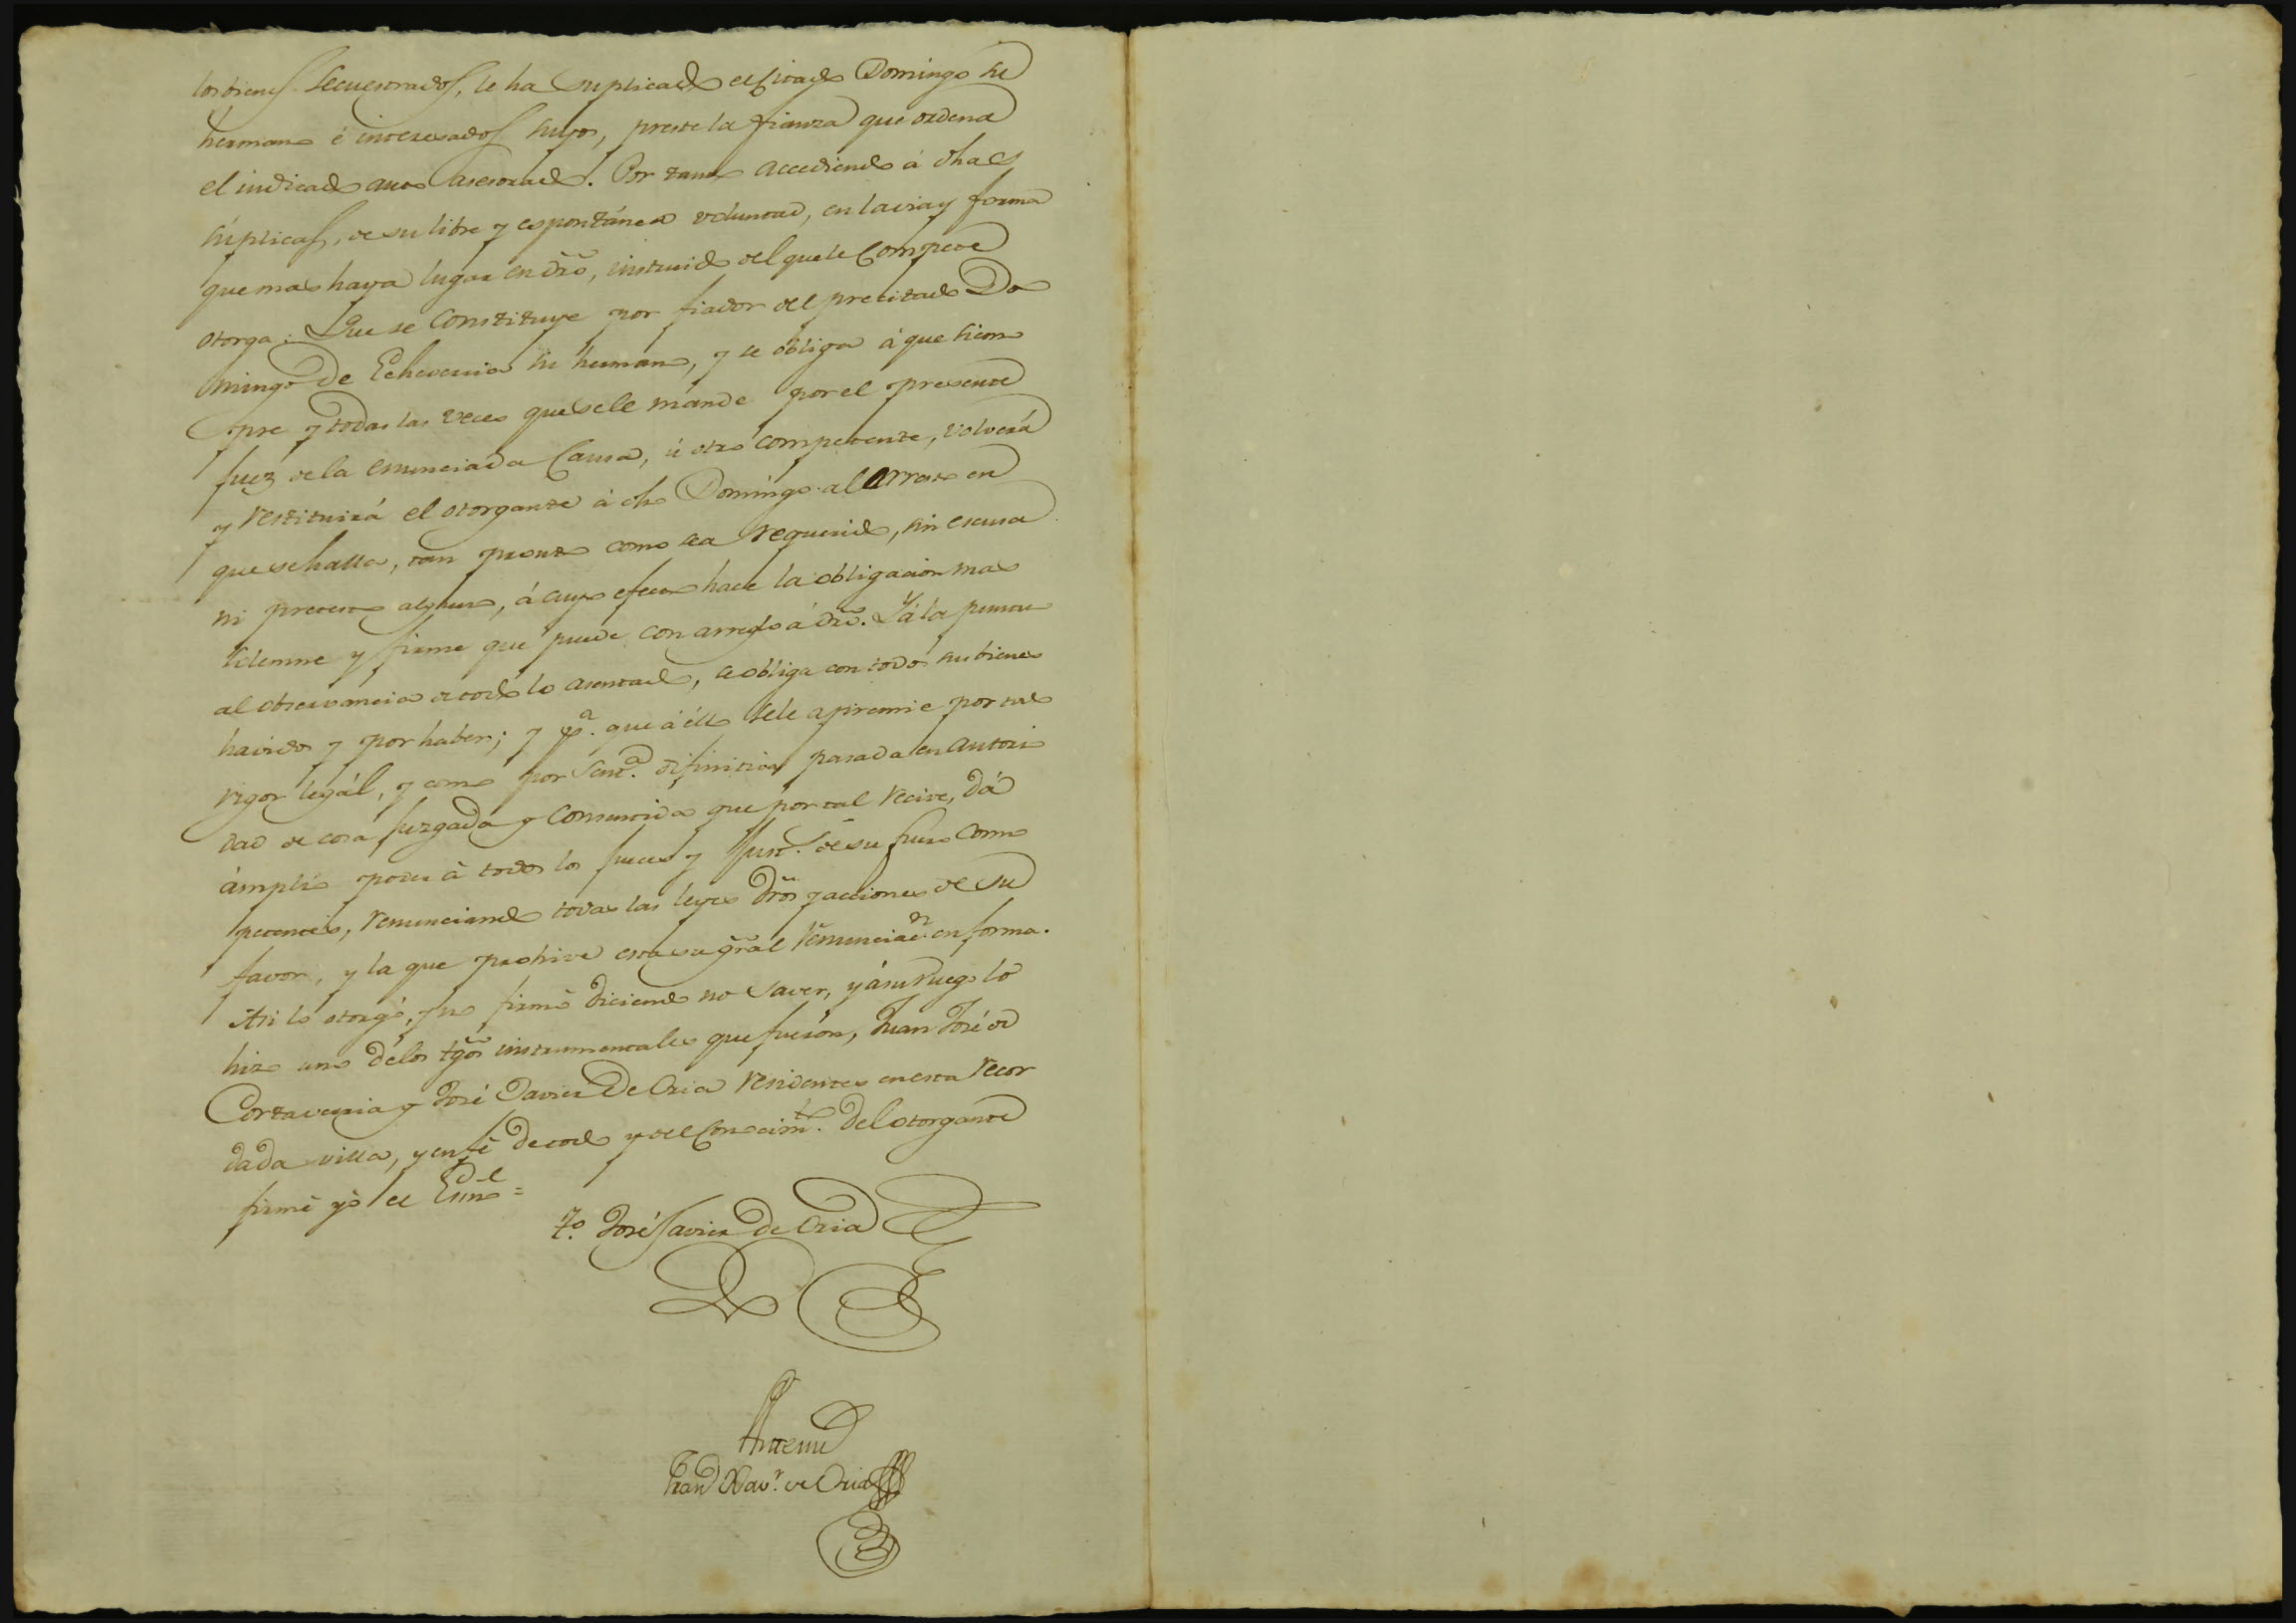 los bienes secuestrados, le ha suplicado el citado Domingo su
hermano é interesados suyos, preste la fianza que ordena
el indicado auto asesorado. Por tanto accediendo á dhas
súplicas, de su libre y espontánea voluntad, en la via y forma
que mas haya lugar en dro, instruido del que le compete
otorga: Que se constituye por fiador del precitado Do
mingo de Echeverria su hermano, y se obliga á que siem
pre y todas las veces que se le mande por el presente
Juez de la enunciada Causa, ú otro competente, volverá
y restituirá el otorgante á dho Domingo al arresto en
que se halla, tan pronto como sea requerido, sin escusa
ni pretesto alguno, á cuyo efecto hace la obligacion mas
solemne y firme que puede con arreglo á dro. Y á la puntu
al observancia de todo lo asentado, se obliga con todos sus bienes
havidos y por haber; y pª. que á éllo se le apremie por todo
rigor legál, y como por Sentª. difinitiva pasada en autori
dad de cosa juzgada y consentida que por tal recive, dá
ámplio poder á todos los Jueces y Just.s de su fuero com
petentes, renunciando todas las leyes dros y acciones de su
favor, y la que prohive esta su gral renunciacn en forma.
Asi lo otorgó, y no firmó diciendo no saver, y á su ruego lo
hizo uno de los tgos instrumentales que fueron, Juan José de
Cortaverria y José Javier De Oria residentes en esta recor
dada villa, y en fé de todo y del conocimto. del otorgante
firmé yo el Esno =
To. José Javier De Oria
Antemi
Franco Xavr. de Oria